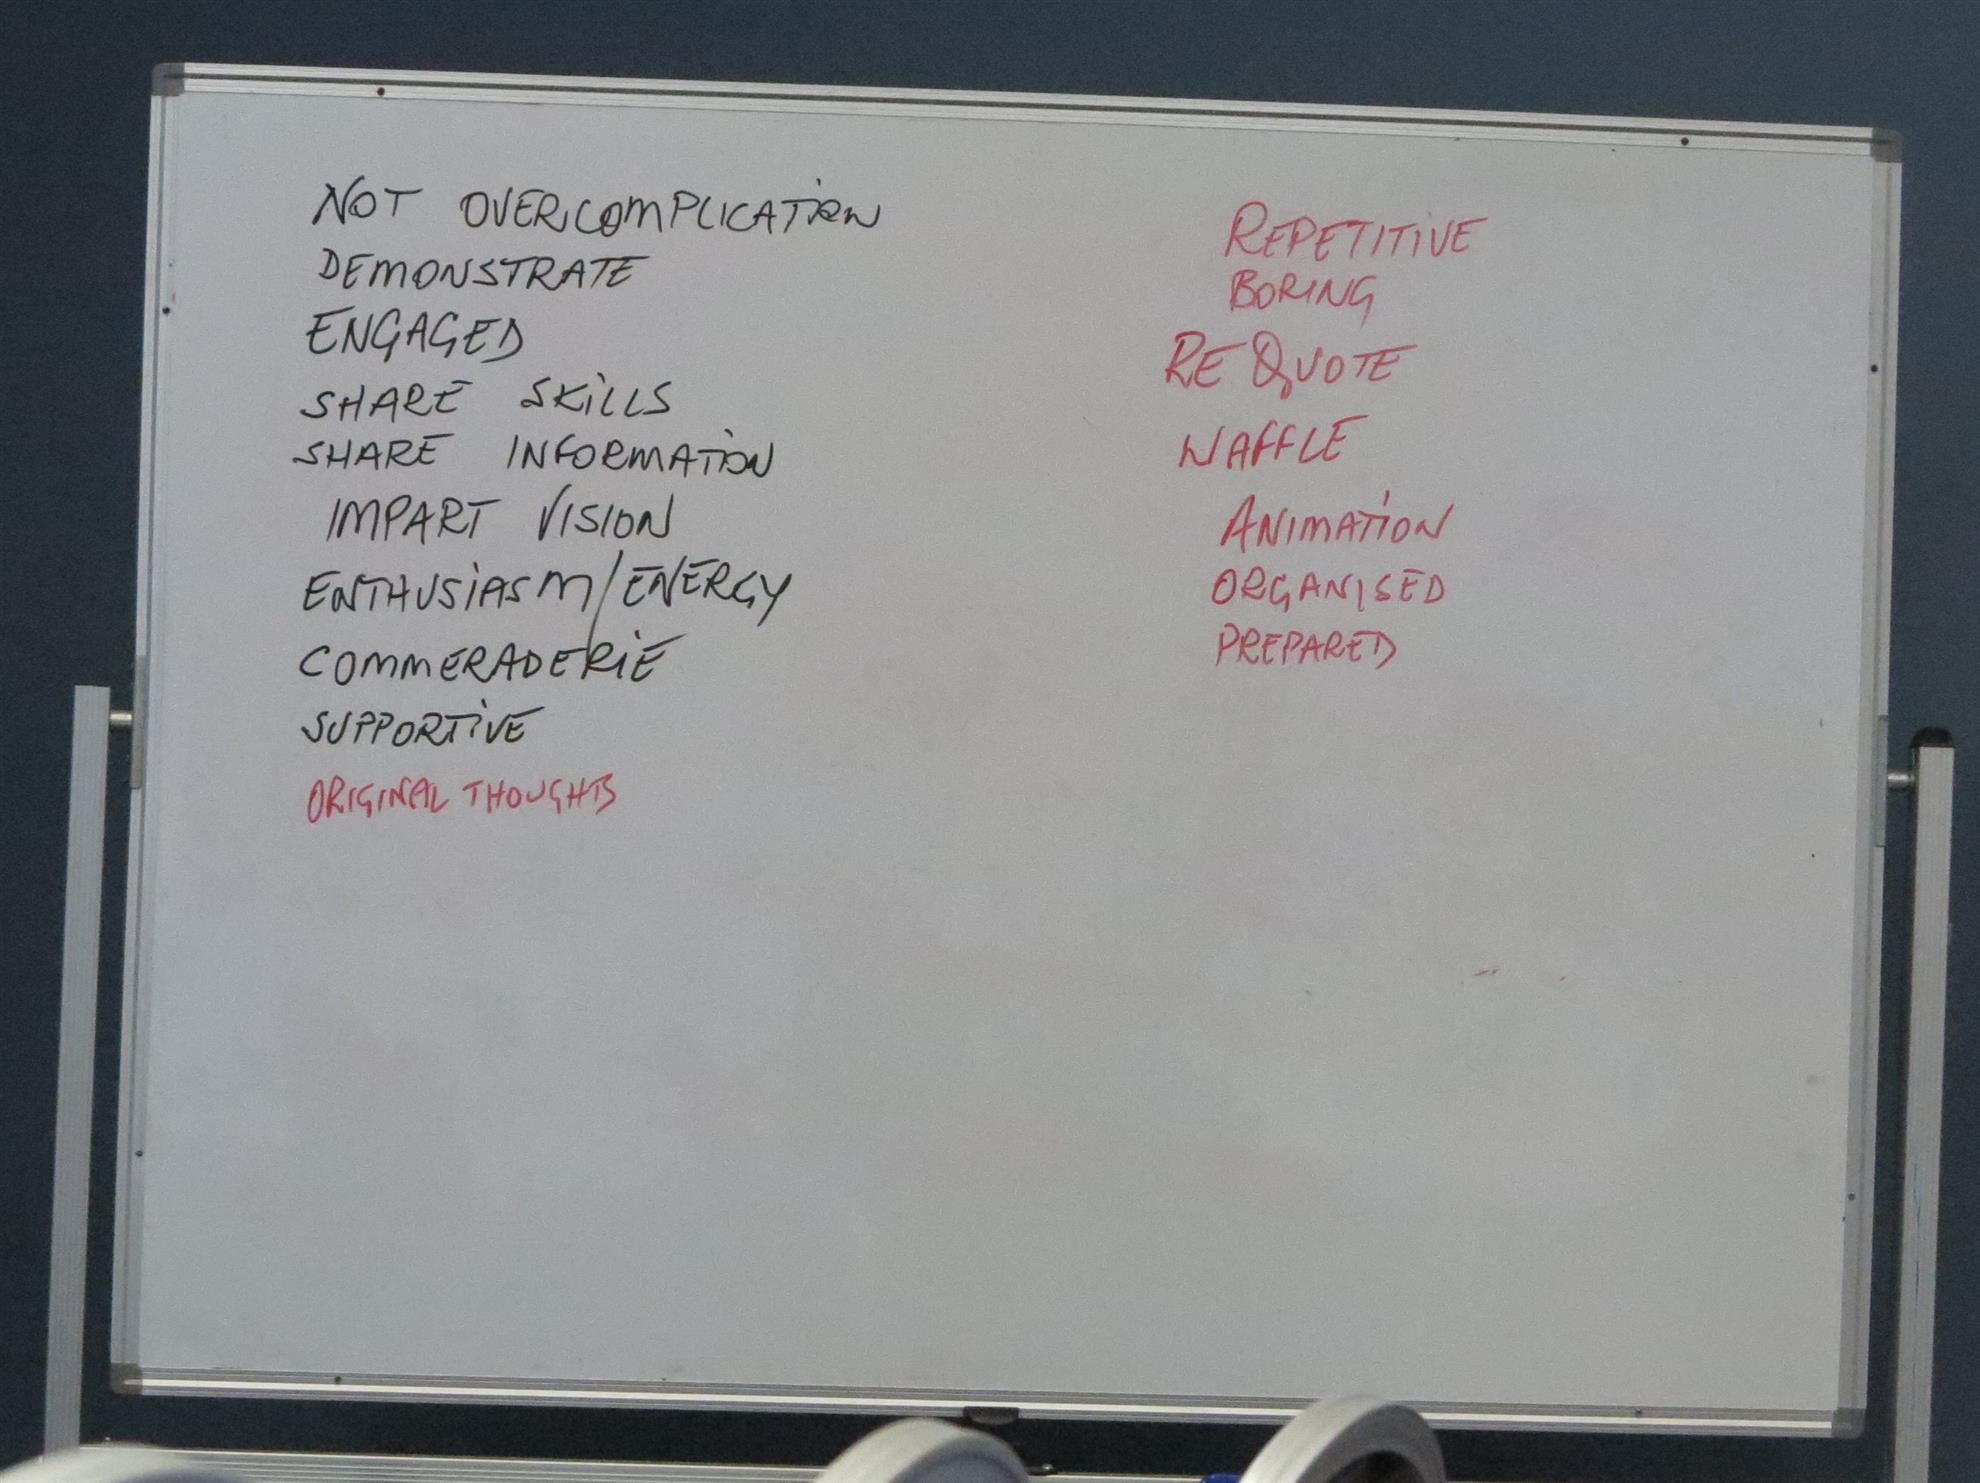 NOT OVERCOMPLICATION
DEMONSTRATE
ENGAGED
SHARE SKILLS
SHARE INFORMATION
IMPART VISION
ENTHUSIASM/ENERGY
COMMERADERIE
SUPPORTIVE
ORIGINAL THOUGHTS
REPETITIVE
BORING
RE QUOTE
WAFFLE
ANIMATION
ORGANISED
PREPARED